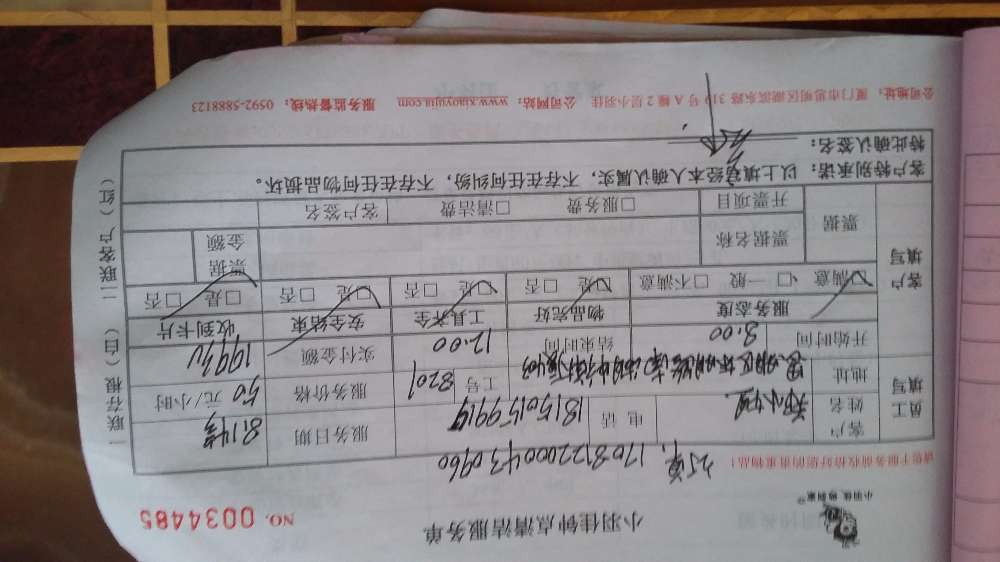 小羽佳钟点清洁服务单
NO. 0034485
小羽佳,
请您于服务前收拾好您的贵重物品!
1708122000430960
员工填写
客户姓名
电话
18150159914
服务日期
地址
工号 8201
服务价格 50 元/小时
开始时间 9.00 结束时间 12.00 实付金额
客户填写
服务态度 物品完好 工具齐全 安全结束 收到卡片
☑满意 □一般 □不满意 ☑是 □否 ☑是 □否 ☑是 □否 □是 □否
票据 票据名称 票据金额
开票项目 □服务费 □清洁费 客户签名
客户特别承诺: 以上填写经本人确认属实,不存在任何纠纷,不存在任何物品损坏。
特此确认签名:
公司地址: 厦门市思明区湖滨东路 319 号 A 幢 2 层小羽佳 公司网站: www.xiaoyujia.com 服务监督热线: 0592-5888123
一联存根(白) 二联客户(红)